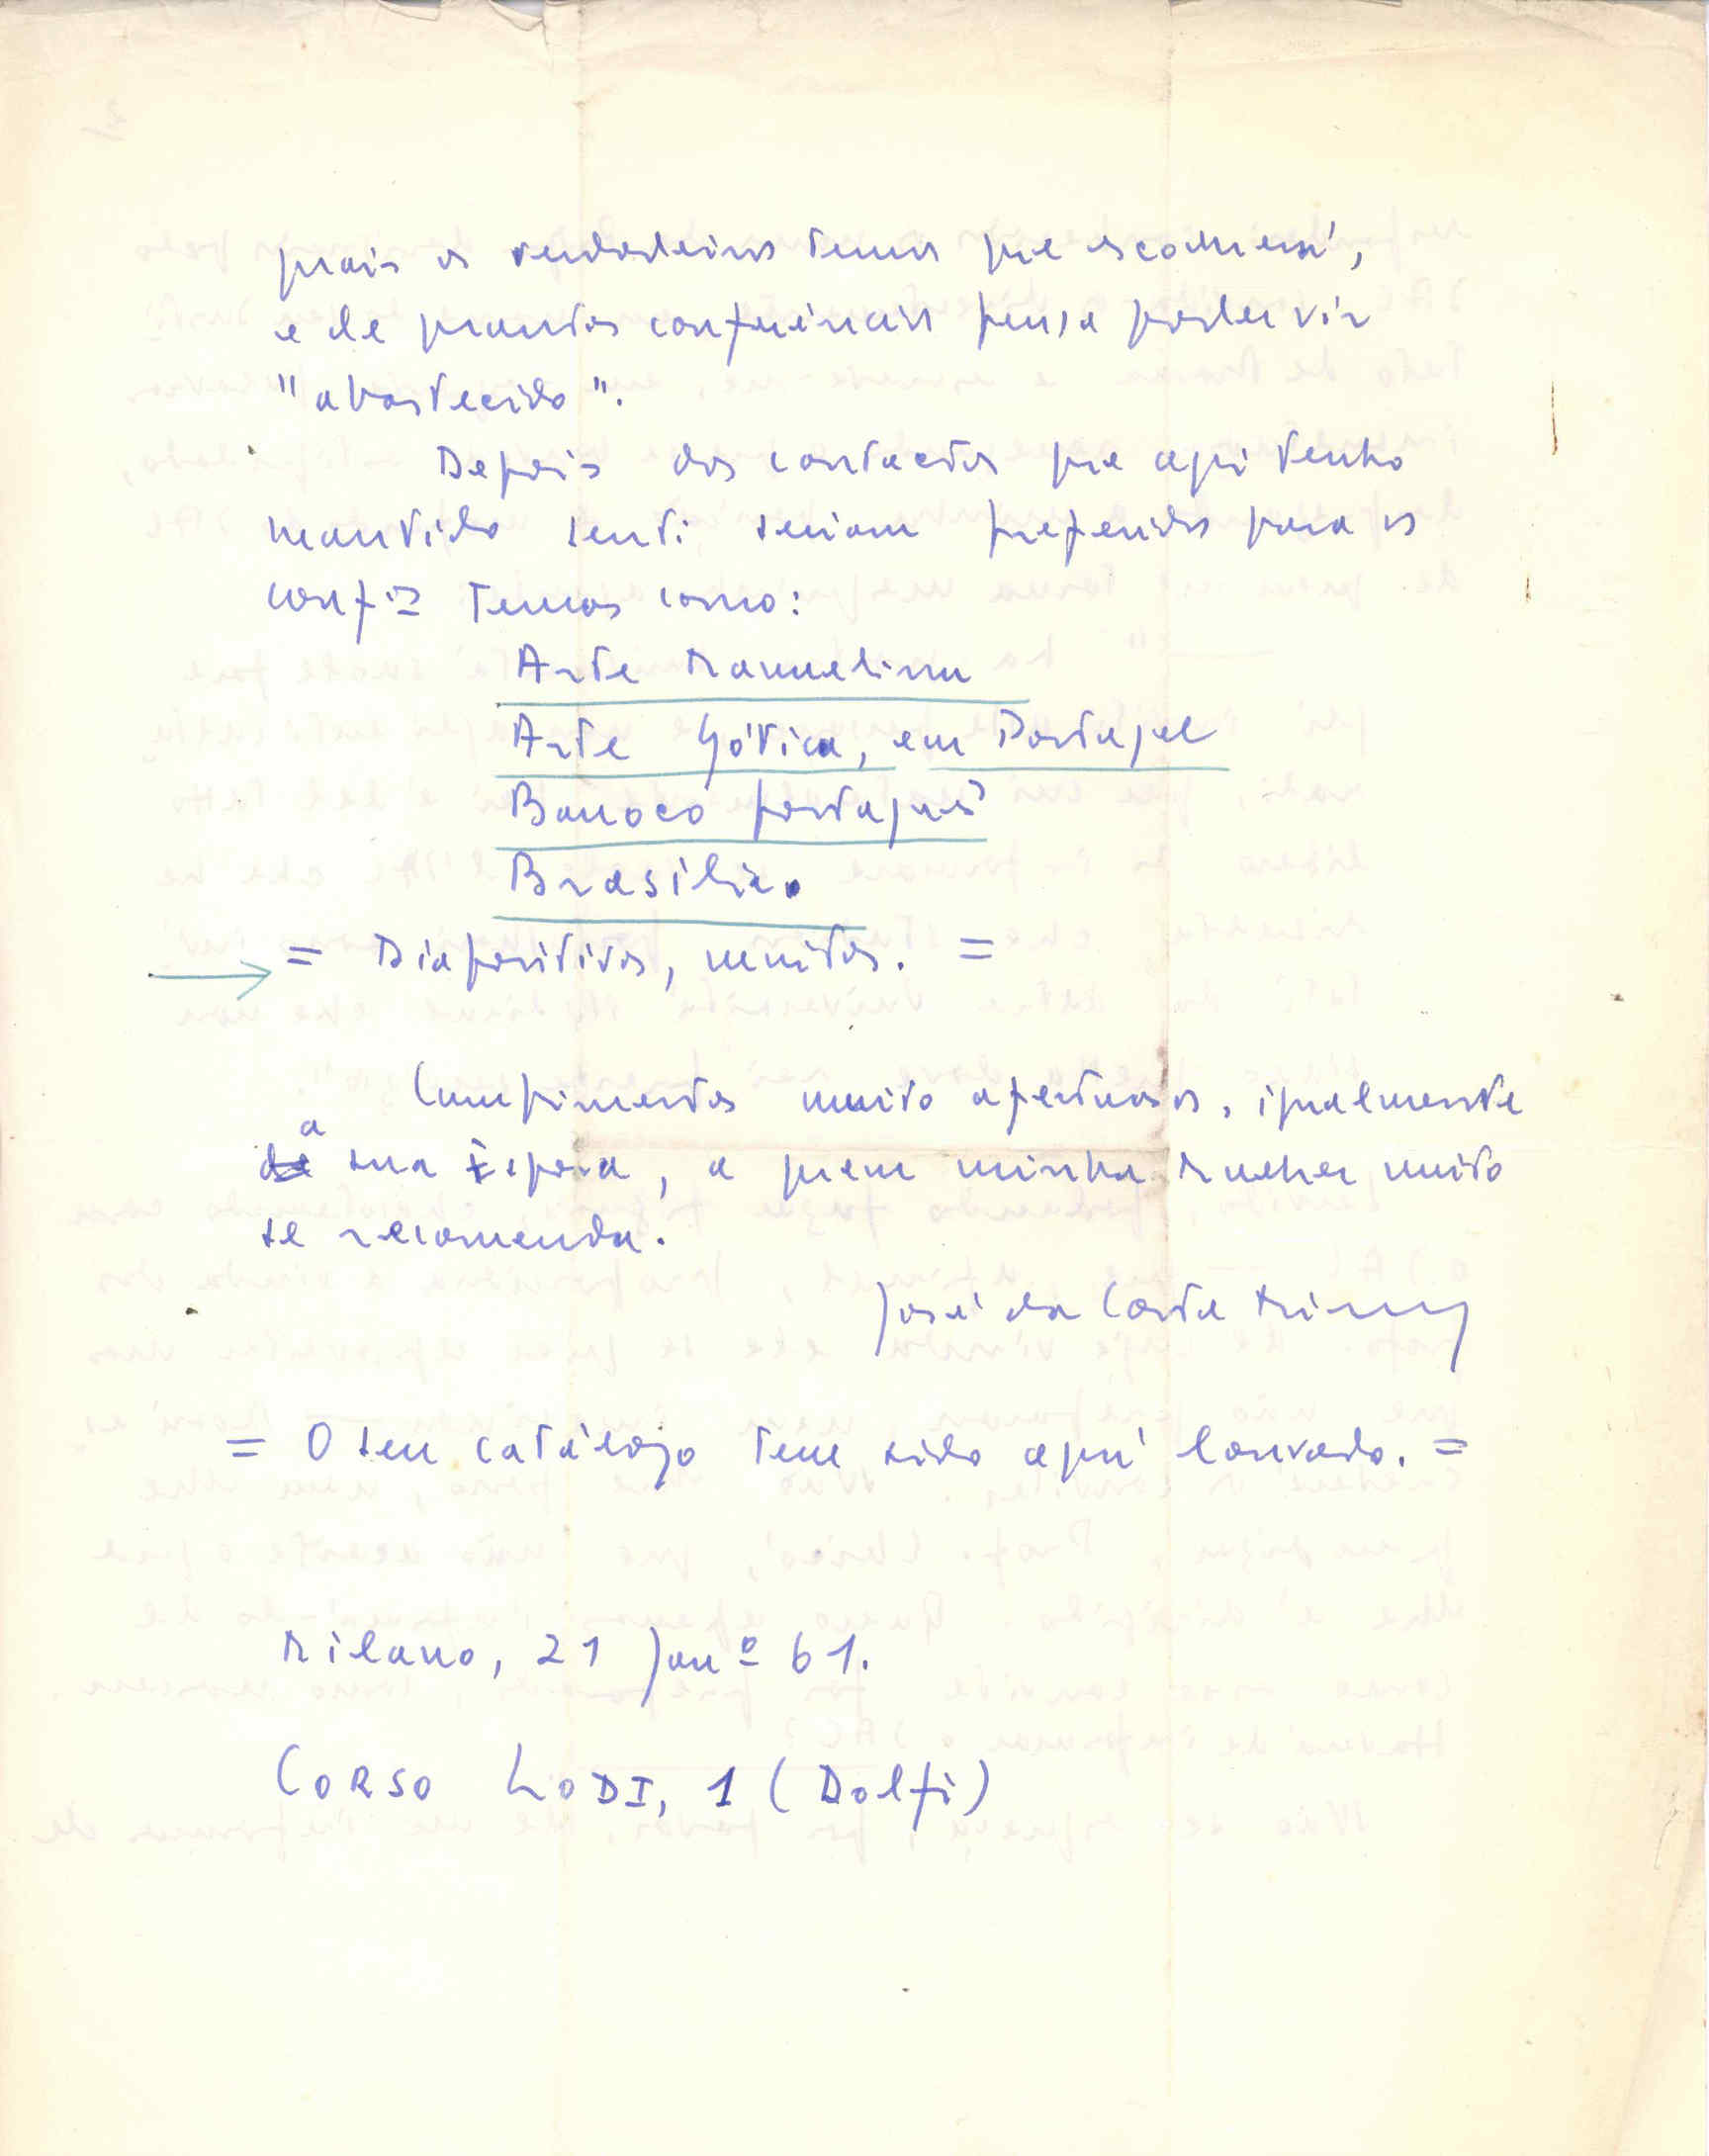 quais os verdadeiros temas que escolherá,
e de quantas conferências pensa poder vir
"abastecido".
Depois dos contactos que aqui tenho
mantido senti seriam preferidos para as
conf.as temas como:
Arte Manuelina
Arte Gótica, em Portugal
Barroco português
Brasília.
= Diapositivos, muitos. =
Cumprimentos muito afectuosos, igualmente
a
de sua Esposa, a quem minha Mulher muito
se recomenda.
José da Costa Miranda
= O seu catálogo tem sido aqui louvado. =
Milano, 21 Jan.º 61.
CORSO LODI, 1 (Dolfi)